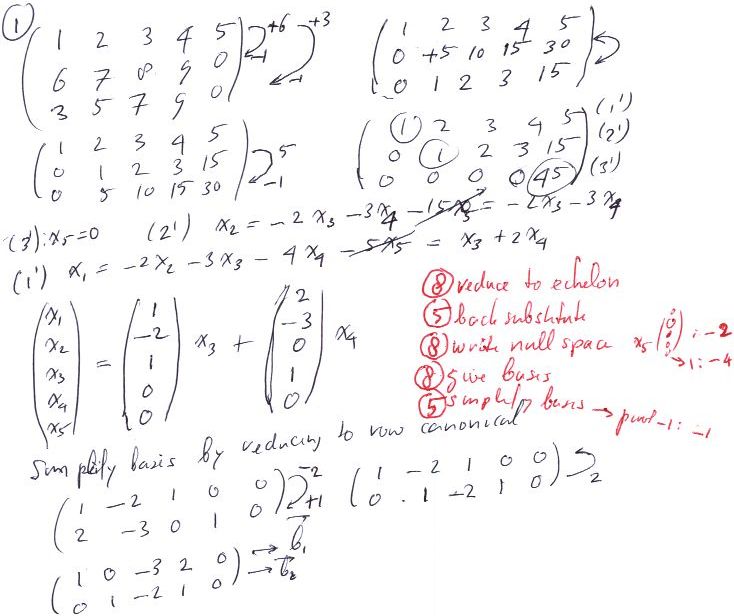 ①
( 1 2 3 4 5 ) +6 +3
( 6 7 8 9 0 ) -1
( 3 5 7 9 0 ) -1
( 1 2 3 4 5 )
( 0 +5 10 15 30 )
( 0 1 2 3 15 )
( 1 2 3 4 5 )
( 0 1 2 3 15 ) 5
( 0 5 10 15 30 ) -1
( ① 2 3 4 5 ) (1')
( 0 ① 2 3 15 ) (2')
( 0 0 0 0 45 ) (3')
(3'): x₅=0 (2') x₂ = -2x₃ -3x₄ -15x₅ = -2x₃ -3x₄
(1') x₁ = -2x₂ -3x₃ - 4x₄ -5x₅ = x₃ + 2x₄
( x₁ ) ( 1 ) ( 2 )
( x₂ ) ( -2 ) ( -3 )
( x₃ ) = ( 1 ) x₃ + ( 0 ) x₄
( x₄ ) ( 0 ) ( 1 )
( x₅ ) ( 0 ) ( 0 )
⑧ reduce to echelon
⑤ back substitute
⑧ write null space x₅ ( 0 0 0 0 ) : -2
→ 1: -4
⑧ give basis
⑤ simplify basis → pivot -1: -1
Simplify basis by reducing to row canonical
( 1 -2 1 0 0 ) -2
( 2 -3 0 1 0 ) +1
( 1 -2 1 0 0 )
( 0 1 -2 1 0 ) 2
( 1 0 -3 2 0 ) → b₁
( 0 1 -2 1 0 ) → b₂